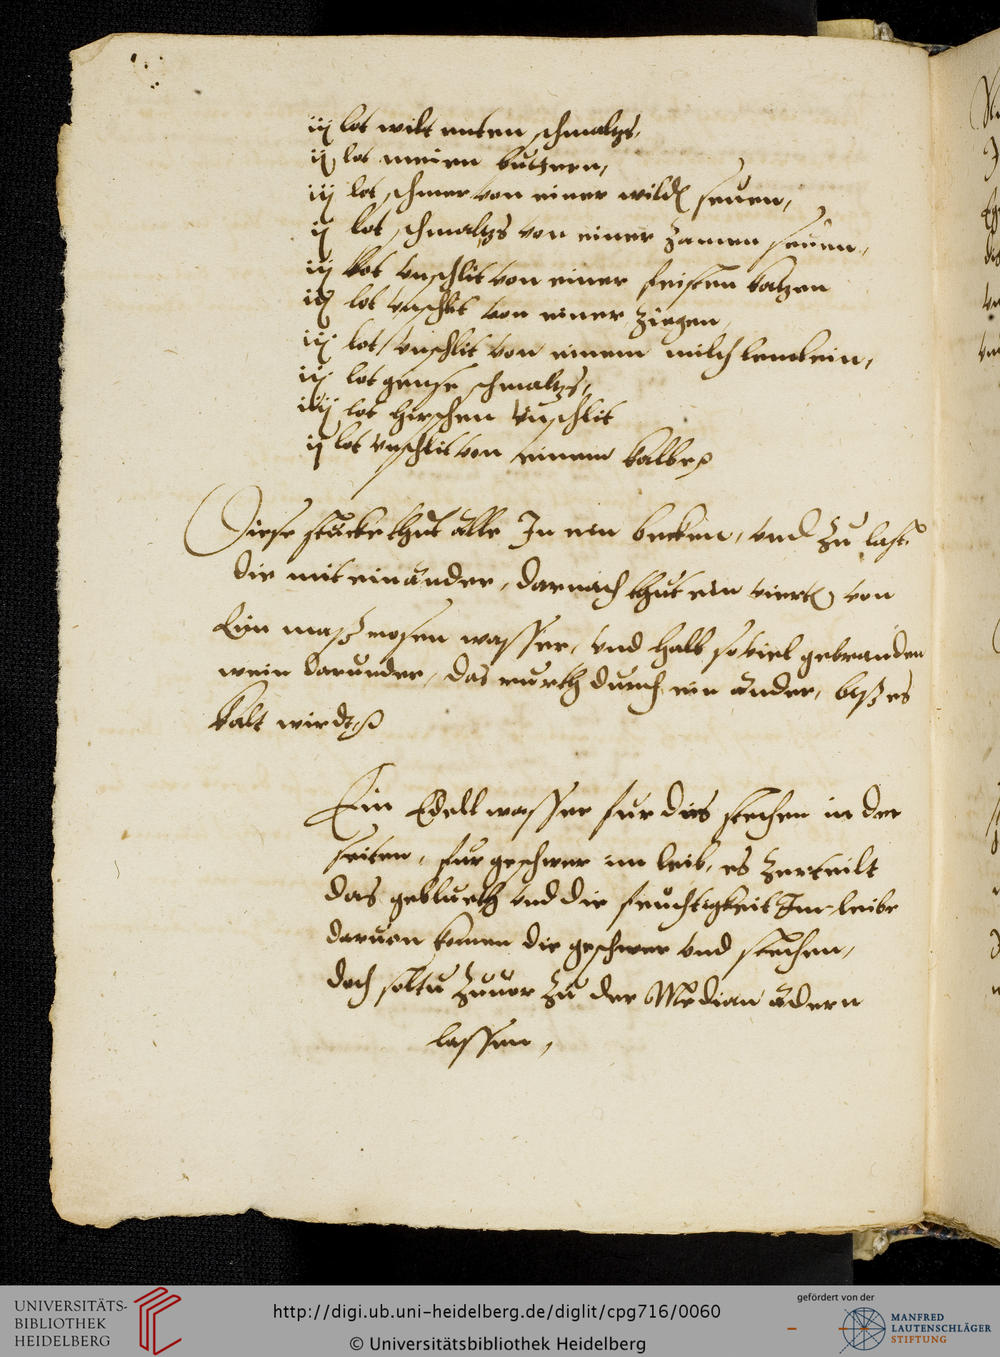 iij lot wilt enten schmaltzs,
ij lot meien buttern,
iij lot schmer von einer wilden seuen,
ij lot schmaltzs von einer zamen seuen,
iij lot vnschlit von einer feisten katzen
iij lot vnschlit von einer ziegen,
iij lot vnschlit von einem milch lemlein,
iij lot gense schmaltzs,
iiij lot hirschen vnschlit
ij lot vnschlit von einem kalbe
Diese stucke thut alle In ein becken, vnd zu lass
die mit einander, darnach thut ein viertel von
Eim mass rosen wasser, vnd halb so viel gebranden
wein darunder, das rurth durch ein ander, biss es
kalt wirdt
Ein Edell wasser fur das stechen in der
seiten, fur geschwer im leib, es zerteilt
das geblueth vnd die feuchtigkeit Im leibe
daruon komen die geschwer vnd stechen,
doch soltu zuuor zu der Median adern
lassen,
UNIVERSITÄTS-
BIBLIOTHEK
HEIDELBERG
http://digi.ub.uni-heidelberg.de/diglit/cpg716/0060
© Universitätsbibliothek Heidelberg
gefördert von der
MANFRED
LAUTENSCHLÄGER
STIFTUNG